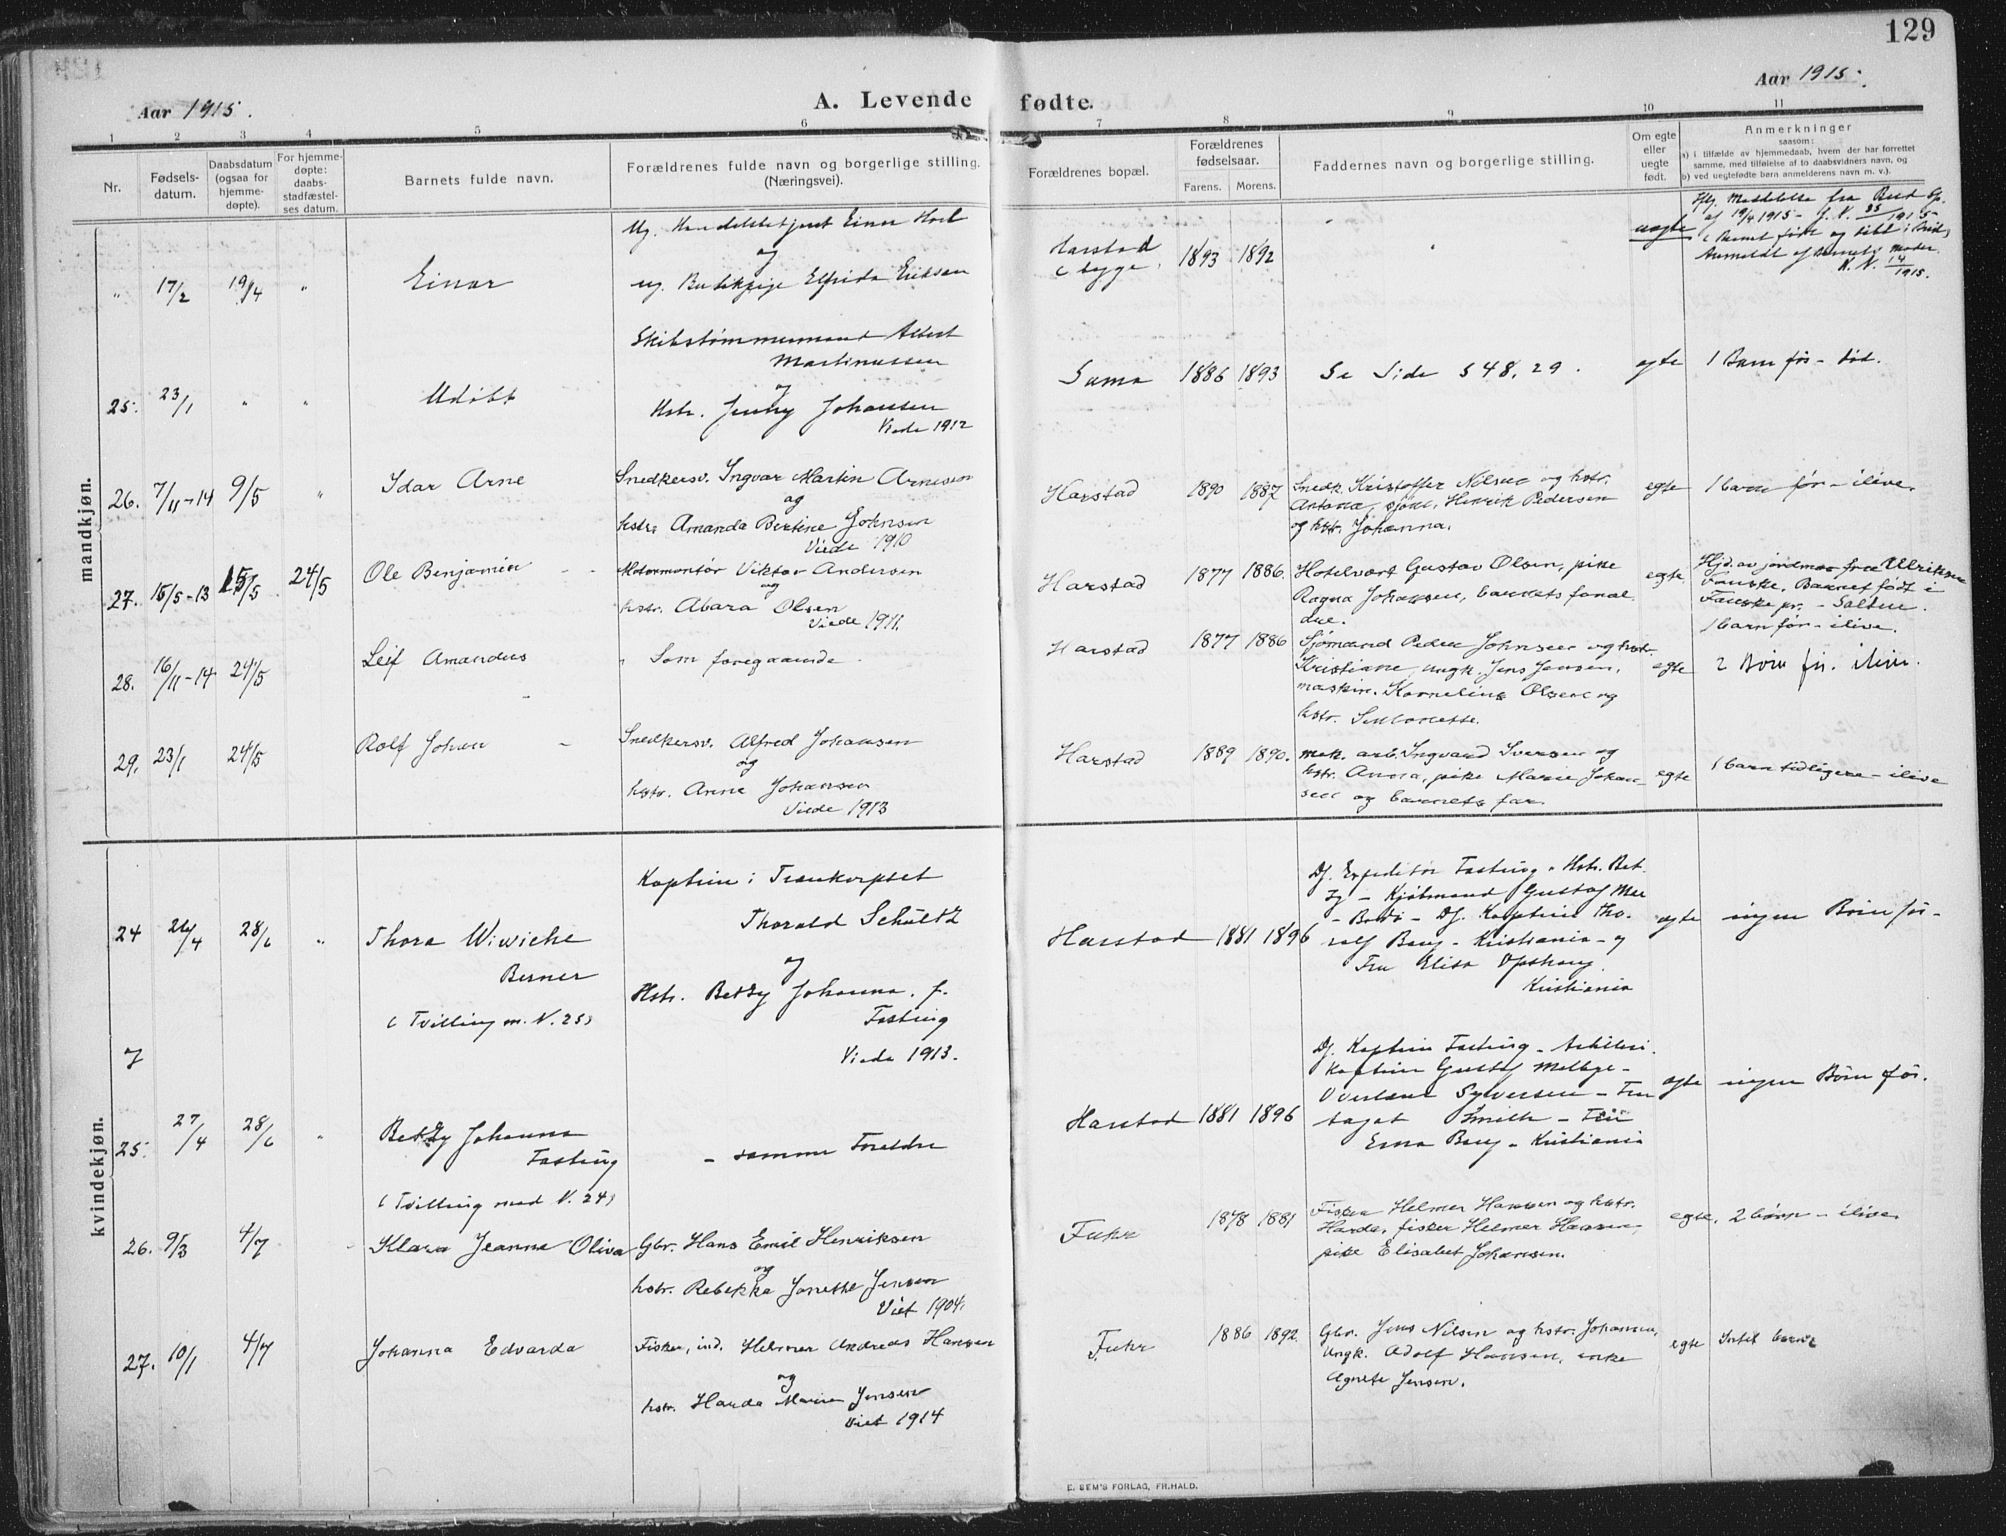 129
Aar 1915.
A. Levende fødte.
Aar 1915.
1 2 3 4 5 6 7 8 9 10 11
Nr.
Fødsels-
datum.
Daabsdatum
(ogsaa for
hjemme-
døpte).
For hjemme-
døpte:
daabs-
stadfæstel-
ses datum.
Barnets fulde navn.
Forældrenes fulde navn og borgerlige stilling.
(Næringsvei).
Forældrenes bopæl.
Forældrenes
fødselsaar.
Farens. Morens.
Faddernes navn og borgerlige stilling.
Om egte
eller
uegte
født.
Anmerkninger
saasom:
a) i tilfælde av hjemmedaab, hvem der har forrettet
samme, med tilføielse af to daabsvidners navn, og
b) ved uegtefødte børn anmelderens navn m. v.).
mandkjøn.
" 17/2 19/4 " Einar
Ug. Einar
og
ug. Elfrida Eriksen
Harstad
bygge.
1893 1892
uegte
af 19/4 1915 - J. N. 1915
Barnet født og døbt i
Anmeldt af Barnets Moder.
K. N. 14/1915.
25. 23/1 " " Udøbt
Skibstømmermand Albert
Martinussen
og
Hstr. Jenny Johansen
Viede 1912
Sama 1886 1893 Se Side 548, 29. egte 1 Barn før - død.
26. 7/11-14 9/5 " Idar Arne
Snedkersv. Ingvar Martin Arnesen
og
hstr. Amanda Bertine Johnsen
Viede 1910
Harstad 1890 1887
Snedk. Kristoffer Nilsen og hstr.
Antona, sjøm. Henrik Pedersen
og hstr. Johanna.
egte 1 barn før - ilive.
27. 15/5-13 15/5 24/5 Ole Benjamin
Motormontør Viktor Andersen
og
hstr. Abara Olsen
Viede 1911.
Harstad 1877 1886.
Hotelvært Gustav Olsen, pike
Ragna Johansen, barnets foræl
dre.
egte
Hjd. av jordmor frøe Ulriksen
Fauske. Barnet født i
Fauske pr. - Salten.
1 barn før - ilive.
28. 16/11-14 24/5 Leif Amandus
" Som foregaaende.
Harstad 1877 1886
Sjømand Peder Johnsen og hstr.
Kristiane, ungk. Jens Jensen,
maskin. Kornelius Olsen og
hstr.
egte 2 Børn før. ilive.
29. 23/1 24/5 Rolf Johan
Snedkersv. Alfred Johansen
og
hstr. Anne Johansen
Viede 1913
Harstad 1889 1890.
mek. arb. Ingvard Iversen og
hstr. Anna, pike Marie Johan-
sen og barnets far.
egte 1 barn tidligere - ilive
kvindekjøn.
24 26/4 28/6 " Thora Wiwiche
Berner
(Tvilling m. N. 25)
Kaptein i Trænkorpset
Thorald Schultz
og
Hstr. Betzy Johanna. f.
Fasting
Viede 1913.
Harstad 1881 1896
Df. Expeditør Fasting - Hstr. Bet
zy - Kjøbmand Gustaf
- Bodø - Df. Kaptein Tho-
ralf Berg - Kristiania - og
Fru Elisa
Kristiania
egte ingen Børn før -
7
25. 27/4 28/6 " Betzy Johanna
Fasting
(Tvilling med N. 24)
- samme Foreldre
Harstad 1881 1896
Df. Kaptein Fasting - Artilleri.
kaptein Gustaf
Sylversen - Fru
Smith - Frü
Erna Berg - Kristiania
egte ingen Børn før.
26. 9/3 4/7 Klara Jeanna Oliva
Gbr. Hans Emil Henriksen
og
hstr. Rebekka Janette Jensen
Viet 1904.
Fuhr 1878 1881
Fisker Helmer Hansen og hstr.
Harda, fisker Helmer Hansen,
pike Elisabet Johansen.
egte, 2 børn - ilive.
27. 10/1 4/7 Johanna Edvarda
Fisker, ind. Helmer Andreas Hansen
og
hstr. Harda Marie Jensen
Viet 1914
Fuhr 1886 1892.
Gbr. Jens Nilsen og hstr. Johanna,
Ungk. Adolf Hansen, enke
Agnete Jensen.
egte Intet barn
E. SEM'S FORLAG, FR.HALD.